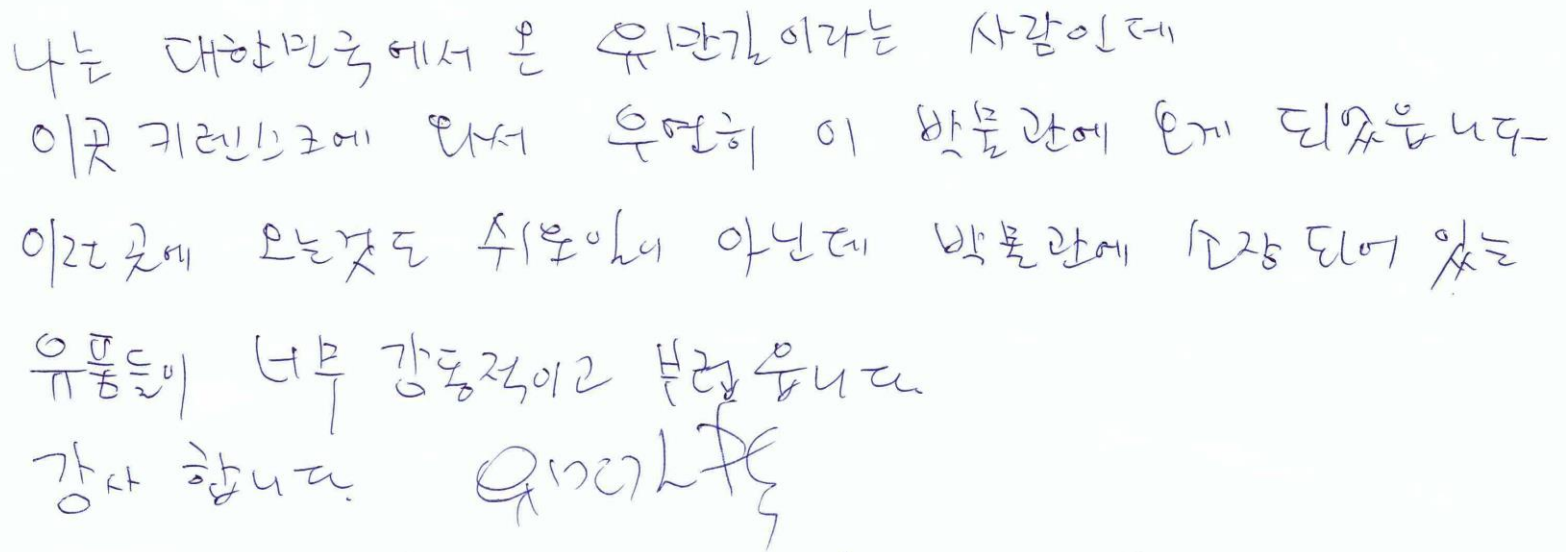 나는 대한민국에서 온 유만길이라는 사람인데
이곳 키렌스크에 와서 우연히 이 박물관에 오게 되었읍니다
이런 곳에 오는것도 쉬운일이 아닌데 박물관에 소장 되어 있는
유품들이 너무 감동적이고 부럽읍니다.
감사 합니다.